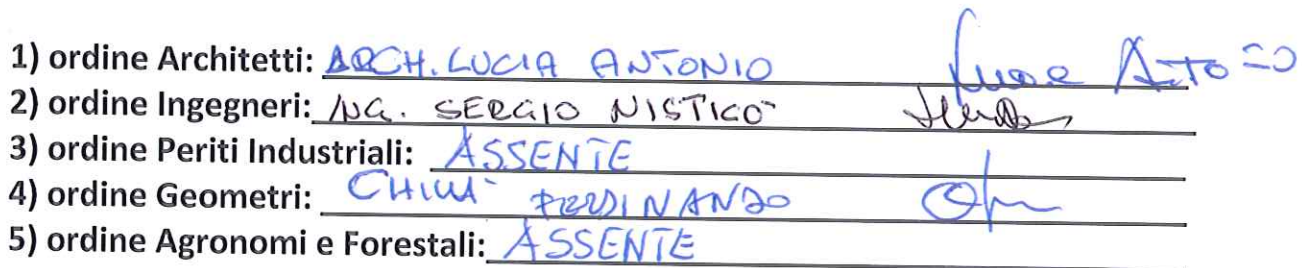 1) ordine Architetti: ARCH. LUCIA ANTONIO
2) ordine Ingegneri: ING. SERGIO NISTICO'
3) ordine Periti Industriali: ASSENTE
4) ordine Geometri: FERDINANDO
5) ordine Agronomi e Forestali: ASSENTE